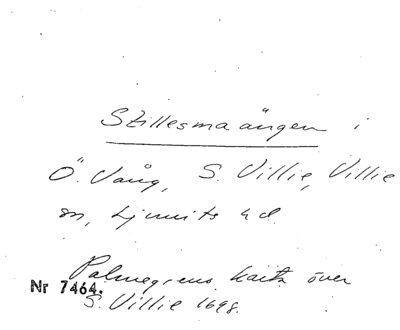 Stillesmaängen i
Ö. Vång, S. Villie, Villie
sn, Ljunits hd.
Palmegrens karta över
Nr 7464.
S. Villie 1698.